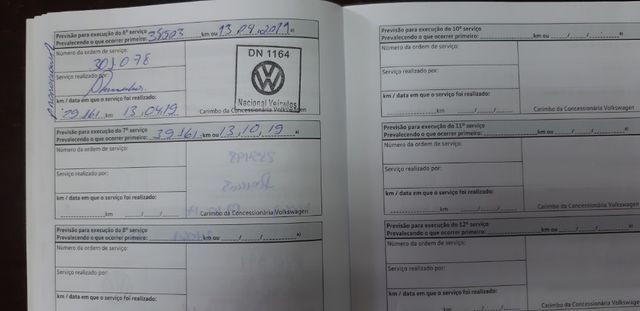 Previsão para execução do 6º serviço
Prevalecendo o que ocorrer primeiro: km ou 13.04.2019 a)
Número da ordem de serviço:
301078
Serviço realizado por:
km / data em que o serviço foi realizado:
29.161 km 13.04.19
DN 1164
Nacional Veículos
Carimbo da Concessionária Volkswagen
Previsão para execução do 7º serviço
Prevalecendo o que ocorrer primeiro: 39.161 km ou 13,10,19 a)
Número da ordem de serviço:
Serviço realizado por:
km / data em que o serviço foi realizado:
km / /
Carimbo da Concessionária Volkswagen
Previsão para execução do 8º serviço
Prevalecendo o que ocorrer primeiro: km ou / / a)
Número da ordem de serviço:
Serviço realizado por:
km / data em que o serviço foi realizado:
Previsão para execução do 10º serviço
Prevalecendo o que ocorrer primeiro: km ou / /
Número da ordem de serviço:
Serviço realizado por:
km / data em que o serviço foi realizado:
km / /
Carimbo da Concessionária Volkswagen
Previsão para execução do 11º serviço
Prevalecendo o que ocorrer primeiro: km ou / /
Número da ordem de serviço:
Serviço realizado por:
km / data em que o serviço foi realizado:
km / /
Carimbo da Concessionária Volkswagen
Previsão para execução do 12º serviço
Prevalecendo o que ocorrer primeiro: km ou / / a)
Número da ordem de serviço:
Serviço realizado por:
km / data em que o serviço foi realizado:
km / /
Carimbo da Concessionária Volkswagen